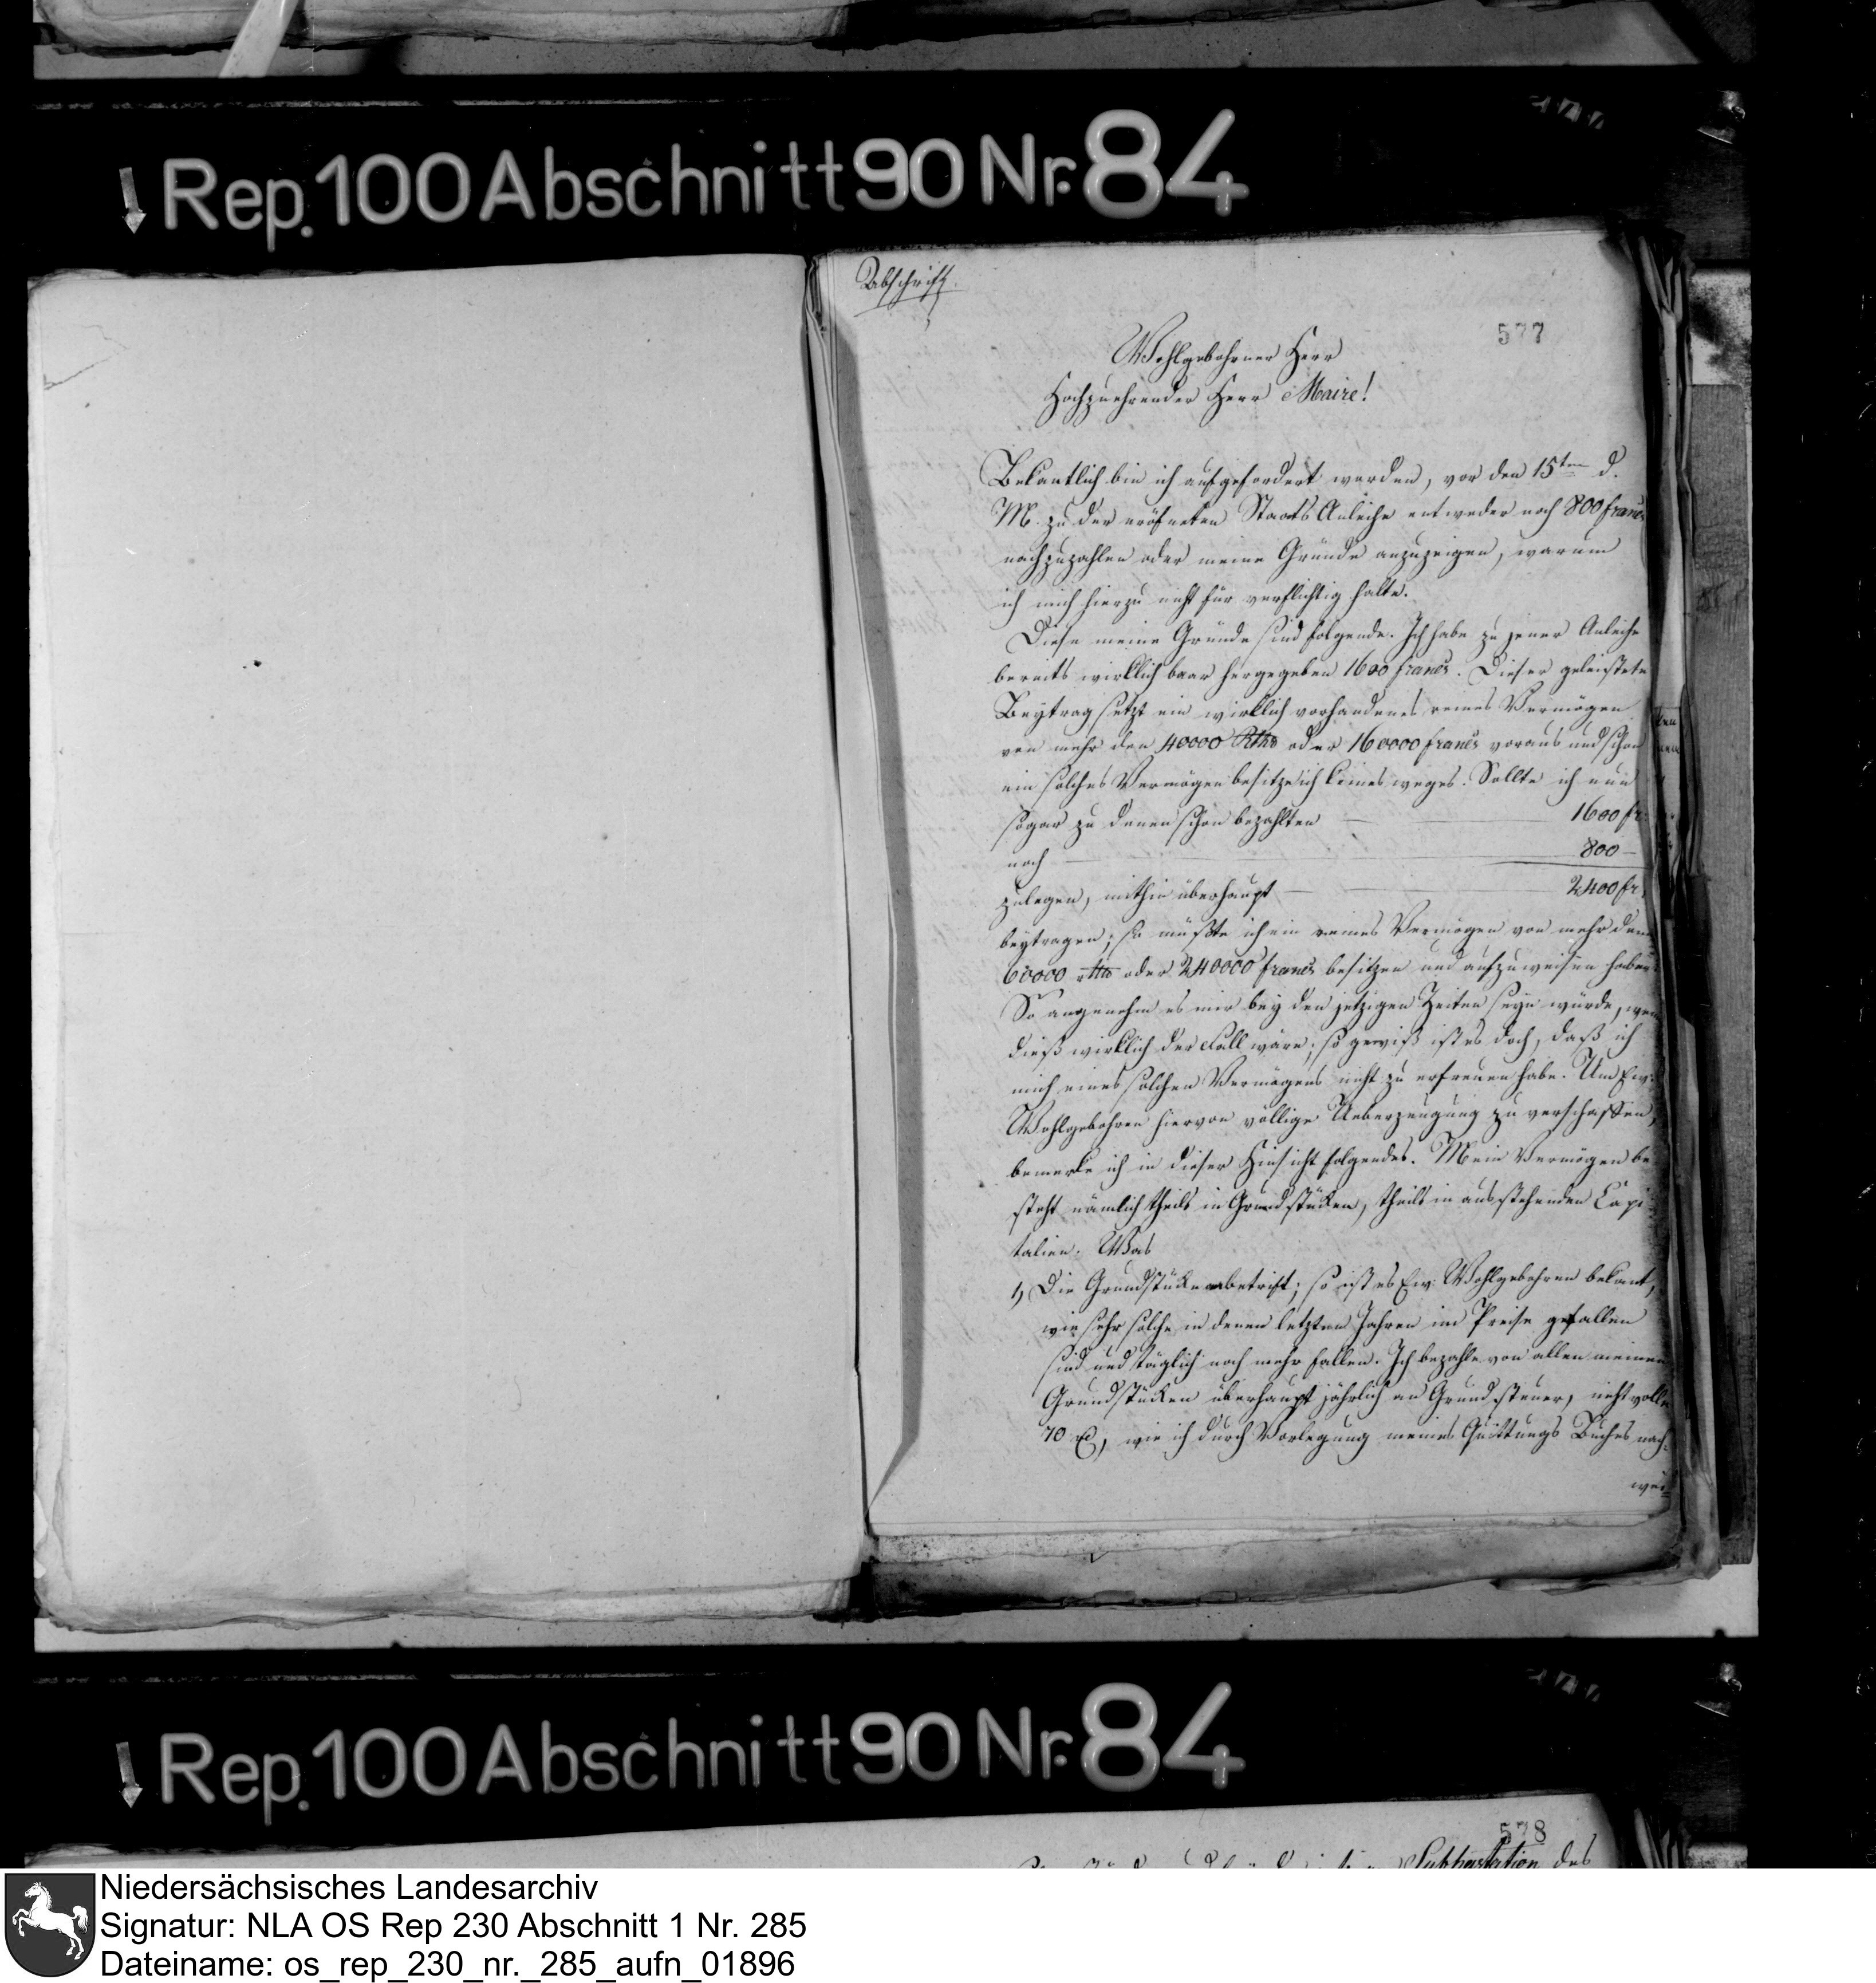 Rep. 100 Abschnitt 90 Nr. 84
Abschrift.
577
Wohlgebohrner Herr
Hochzuehrender Herr Maire!
Bekantlich bin ich aufgefordert worden, vor den 15ten d.
M. zu der eröfneten Staats Anleihe entweder noch 800 francs
nachzuzahlen oder meine Gründe anzuzeigen, warum
ich mich hierzu nicht für verflichtig halte.
Diese meine Gründe sind folgende. Ich habe zu jener Anleihe
bereits wirklich baar hergegeben 1600 francs. Dieser geleistete
Beytrag setzt ein wirklich vorhandenes reines Vermögen
von mehr den 40000 Rthr oder 160000 francs voraus und schon
ein solches Vermögen besitze ich keines weges. Sollte ich nun
sogar zu denen schon bezahlten — 1600 fr.
noch — 800 —
zulegen, mithin überhaupt — 2400 fr.
beytragen; so müßte ich ein reines Vermögen von mehr denn
60000 rthr oder 240000 francs besitzen und aufzuweisen haben.
So angenehm es mir bey den jetzigen Zeiten seyn würde, wen
dieß wirklich der Fall wäre; so gewiß ist es doch, daß ich
mich eines solchen Vermögens nicht zu erfreuen habe. Um Ew.
Wohlgebohren hiervon völlige Ueberzeugung zu verschaffen,
bemerke ich in dieser Hinsicht folgendes. Mein Vermögen be
steht nämlich theils in Grundstücken, theils in ausstehenden Capi
talien. Was
1, Die Grundstücke anbetrift; so ist es Ew. Wohlgebohren bekant,
wie sehr solche in denen letzten Jahren im Preise gefallen
sind und täglich noch mehr fallen. Ich bezahle von allen meinen
Grundstücken überhaupt jährlich an Grundsteuer, nicht volle
70 rt, wie ich durch Vorlegung meines Quittungs Buches nach-
wei=
Rep. 100 Abschnitt 90 Nr. 84
578
Subhastation des
Niedersächsisches Landesarchiv
Signatur: NLA OS Rep 230 Abschnitt 1 Nr. 285
Dateiname: os_rep_230_nr._285_aufn_01896